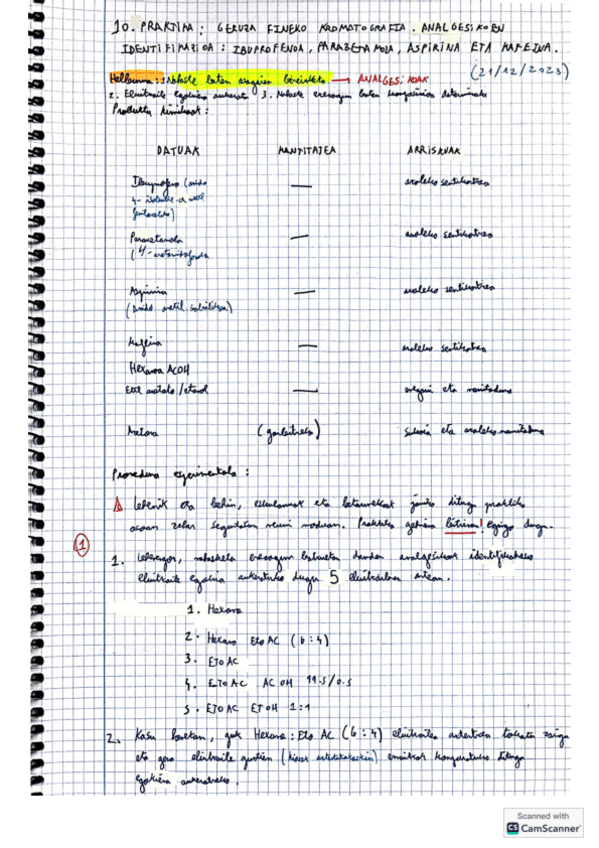 10. PRAKTIKA: GERUZA FINEKO KROMATOGRAFIA. ANALGESIKOEN
IDENTIFIKAZIOA: IBUPROFENOA, PARAZETAMOLA, ASPIRINA ETA KAFEINA.
(21/12/2023)
Helburua: 1. Nahaste baten osagaiak bereizteko → ANALGESIKOAK
2. Eluitzaile egokiena aukeratu 3. Nahaste ezezagun baten konposizioa determinatu
Produktu kimikoak:
DATUAK KANTITATEA ARRISKUAK
Ibuprofeno (azido — azaleko sentikortzea
4- isobutil-α metil
fentazetiko)
Parazetamola — azaleko sentikortzea
(4-acetamidofenola
Aspirina — azaleko sentikortzea
(azido azetil salizilikoa)
Kafeina — azaleko sentikortzea
Hexanoa ACOH
Etil azetato / etanol — eta narritadura
Azetona (garbitzeko) Sukoia eta azaleko narritadura
Prozedura esperimentala:
Lehenik eta behin, eskularruak eta betaurrekoak jantziko ditugu praktika
osoan zehar seguritatea moduan. Praktika gehiena bitrinan! egingo dugu.
1
1. Lehenengo, nahasketa ezezagun batzuetan dauden analgesikoak identifikatzeko
eluitzaile egokiena aukeratuko dugu 5 eluitzaileen artean.
1. Hexano
2. Hexano EtoAC (6:4)
3. EtoAC
4. EtoAC ACOH 99.5/0.5
5. EtoAC ETOH 1:1
2. Kasu honetan, guk Hexano: EtoAC (6:4) eluitzailea aztertzea tokatu zaigu
eta gero eluitzaile guztien (kideek) emaitzak konparatuko ditugu
egokiena aukeratzeko.
Scanned with
CS CamScanner